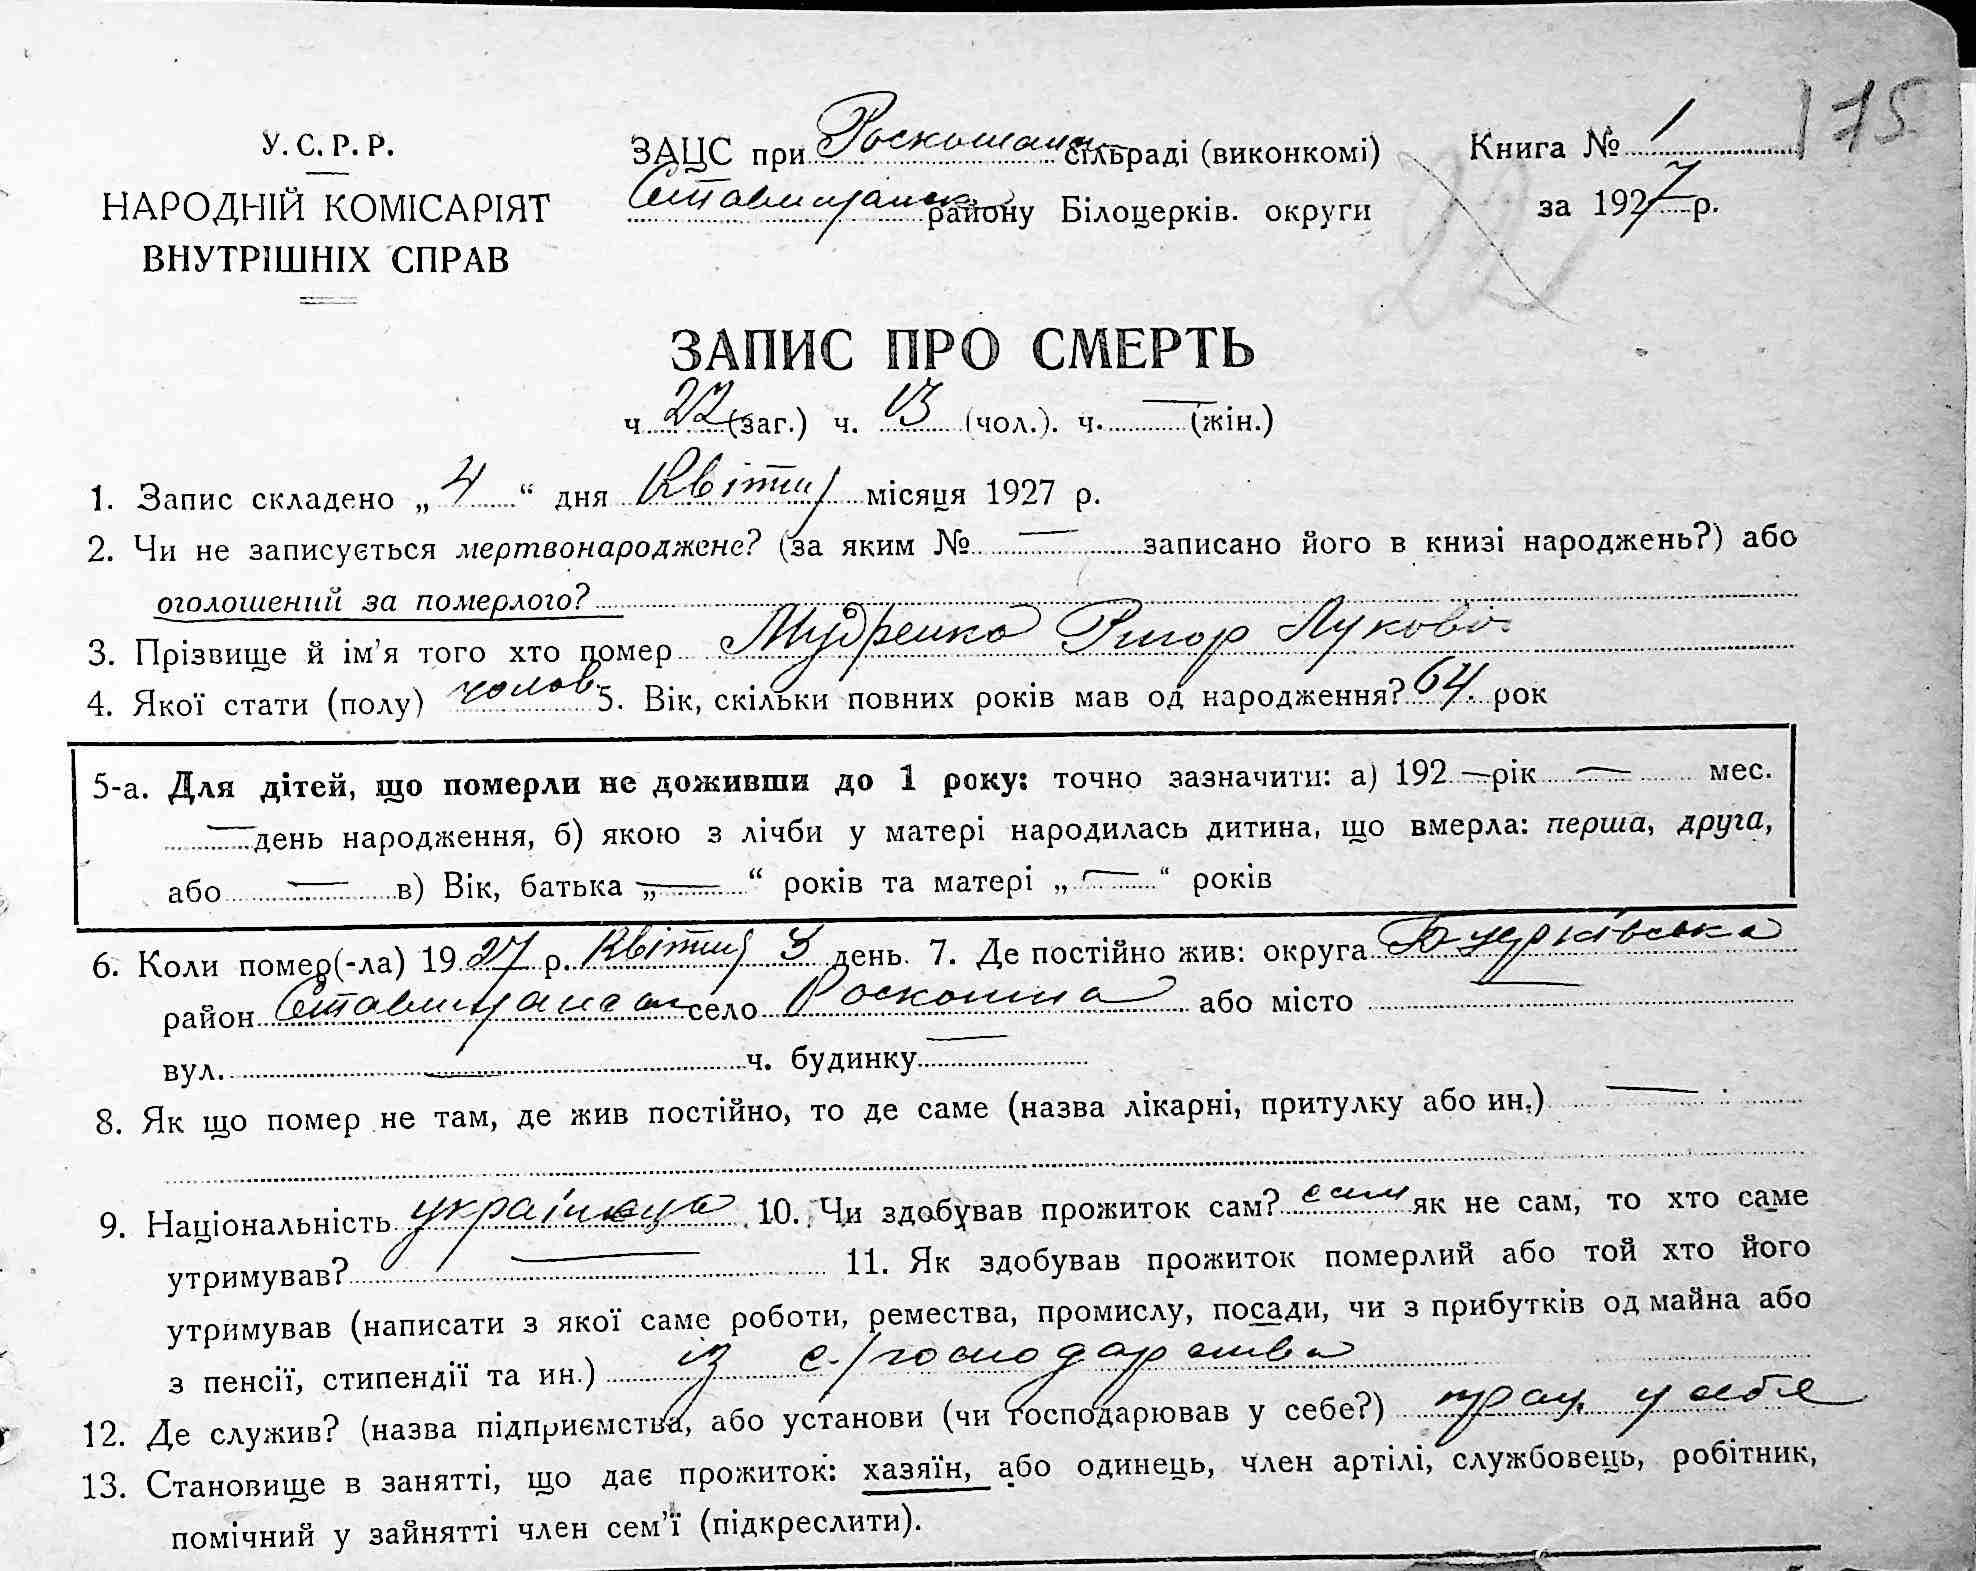 175
У. С. Р. Р.
НАРОДНІЙ КОМІСАРІЯТ
ВНУТРІШНІХ СПРАВ
ЗАЦС при Роскошан сільраді (виконкомі)
Ставищанск району Білоцерків. округи
Книга № 1
за 1927 р.
22
ЗАПИС ПРО СМЕРТЬ
ч 22 (заг.) ч. 13 (чол.). ч. — (жін.)
1. Запис складено „ 4 “ дня Квітня місяця 1927 р.
2. Чи не записується мертвонароджене? (за яким № — записано його в книзі народжень?) або
оголошений за померлого?
3. Прізвище й ім'я того хто помер Мудренко Григор Лукові
4. Якої стати (полу) чолов. 5. Вік, скільки повних років мав од народження? 64 рок
5-а. Для дітей, що померли не доживши до 1 року: точно зазначити: а) 192 — рік — мес.
— день народження, б) якою з лічби у матері народилась дитина, що вмерла: перша, друга,
або — в) Вік, батька „ — “ років та матері „ — “ років
6. Коли помер(-ла) 1927 р. Квітня 3 день. 7. Де постійно жив: округа Б-церківська
район Ставищанськ село Роскошна або місто —
вул. — ч. будинку —
8. Як що помер не там, де жив постійно, то де саме (назва лікарні, притулку або ин.) —
9. Національність українець 10. Чи здобував прожиток сам? сам як не сам, то хто саме
утримував? — 11. Як здобував прожиток померлий або той хто його
утримував (написати з якої саме роботи, ремества, промислу, посади, чи з прибутків од майна або
з пенсії, стипендії та ин.) із с./господарства
12. Де служив? (назва підприємства, або установи (чи господарював у себе?) прац. у себе
13. Становище в занятті, що дає прожиток: хазяїн, або одинець, член артілі, службовець, робітник,
помічний у зайнятті член сем'ї (підкреслити).